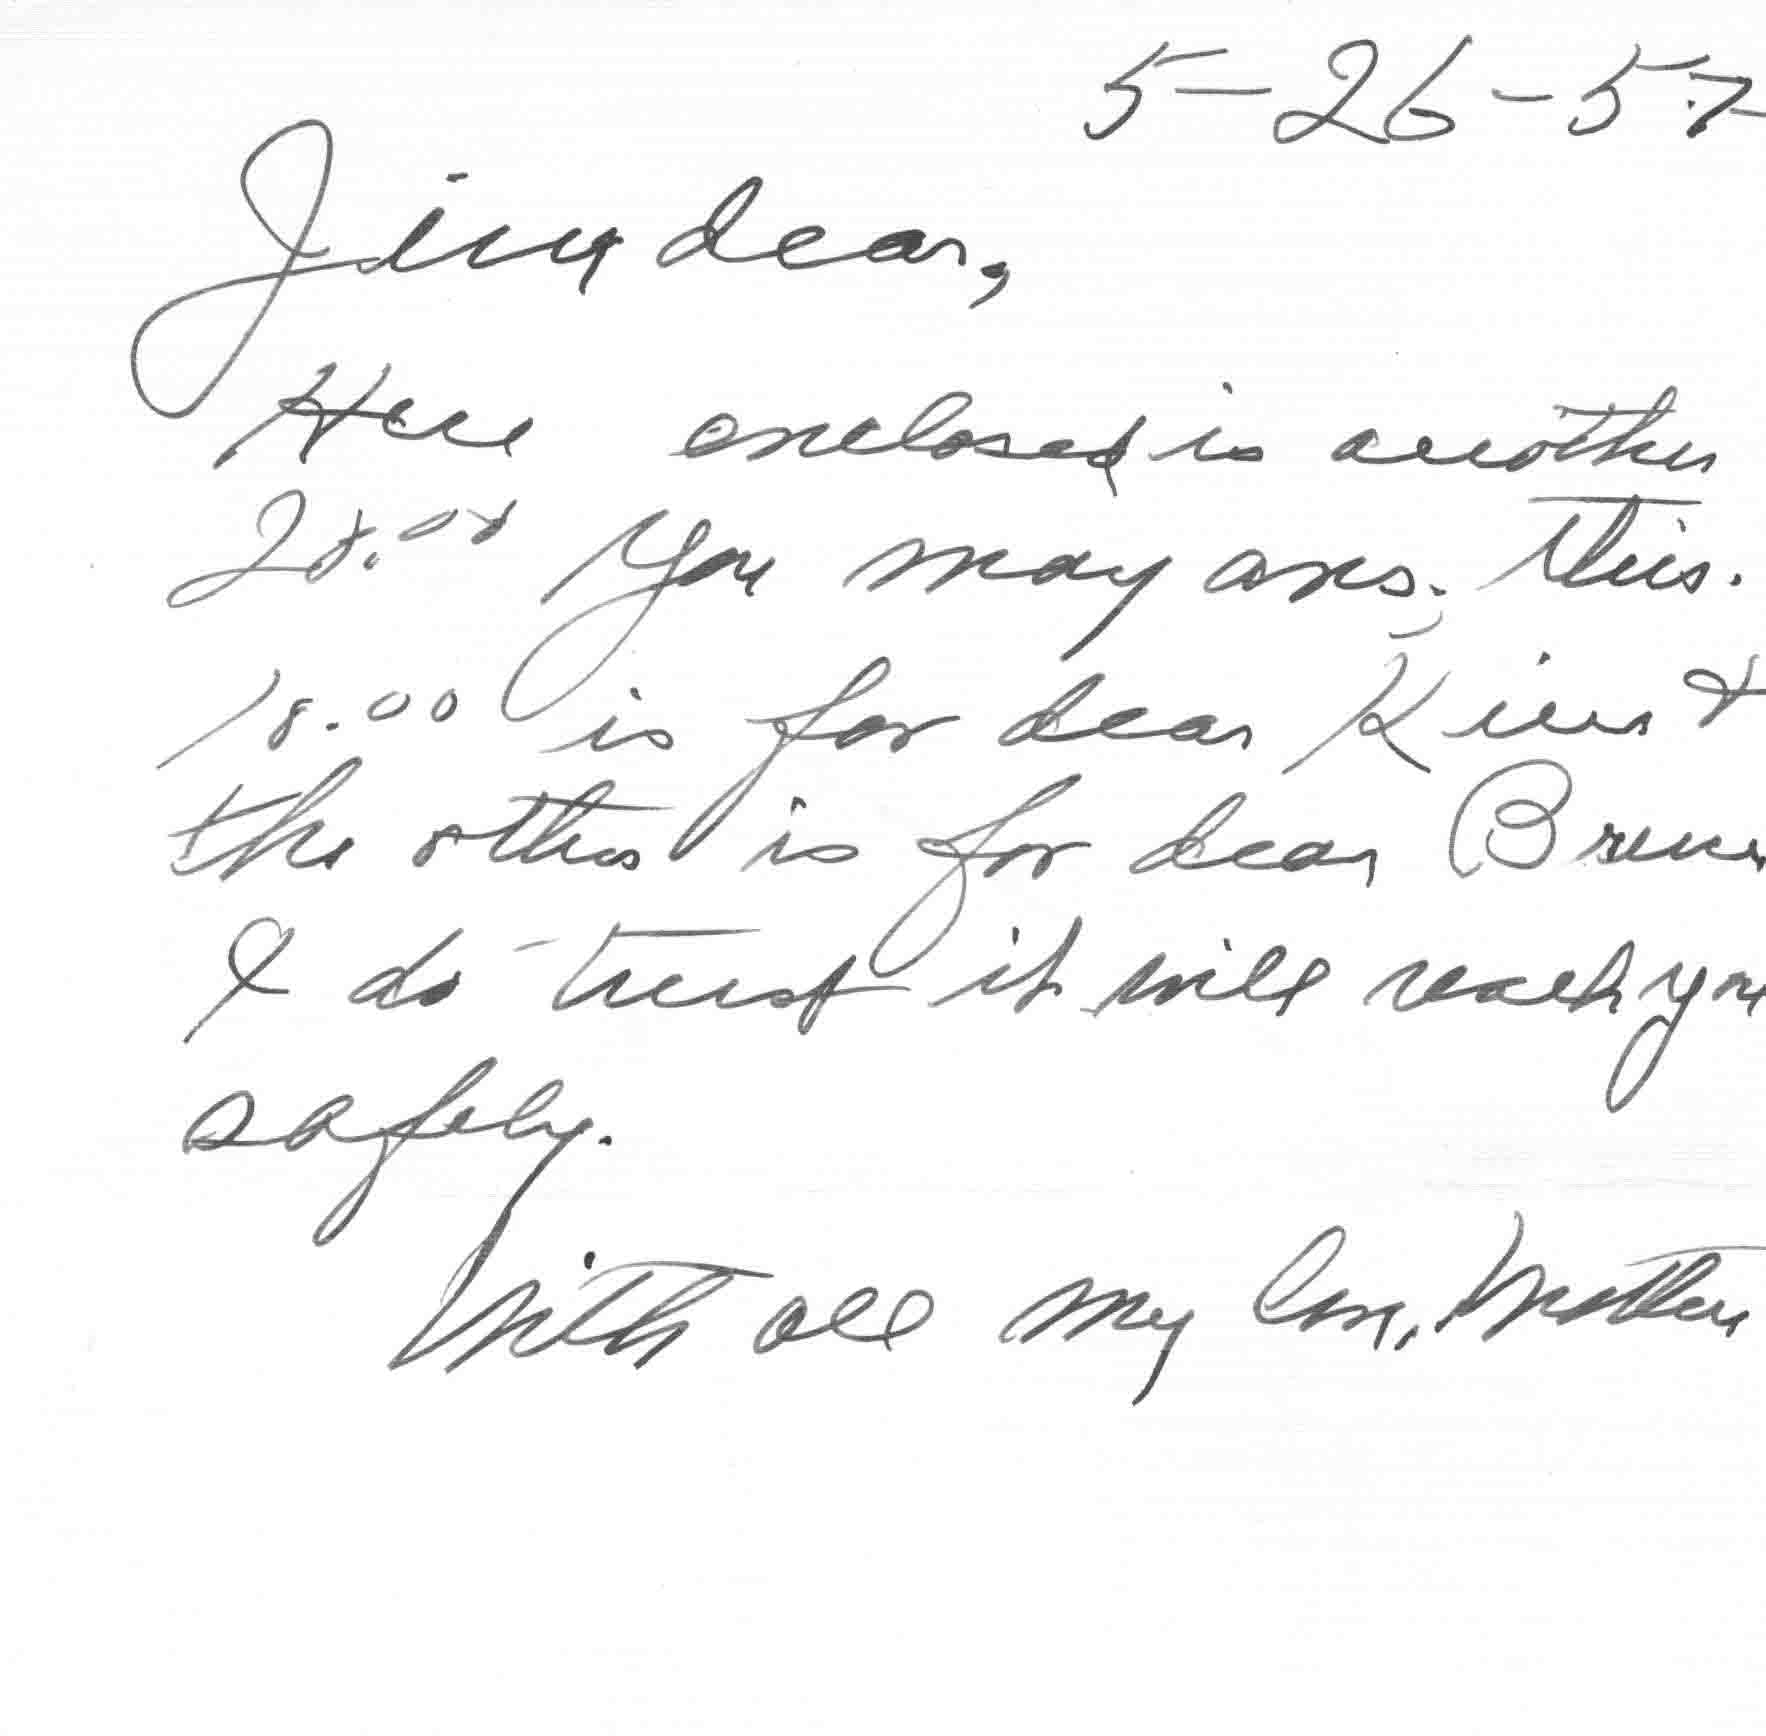 5-26-57
Jim dear,
Here enclosed is another
28.00 You may ans. this.
18.00 is for dear Kim &
the other is for dear Bruce
I do trust it will reach you
safely.
With all my love, Mother